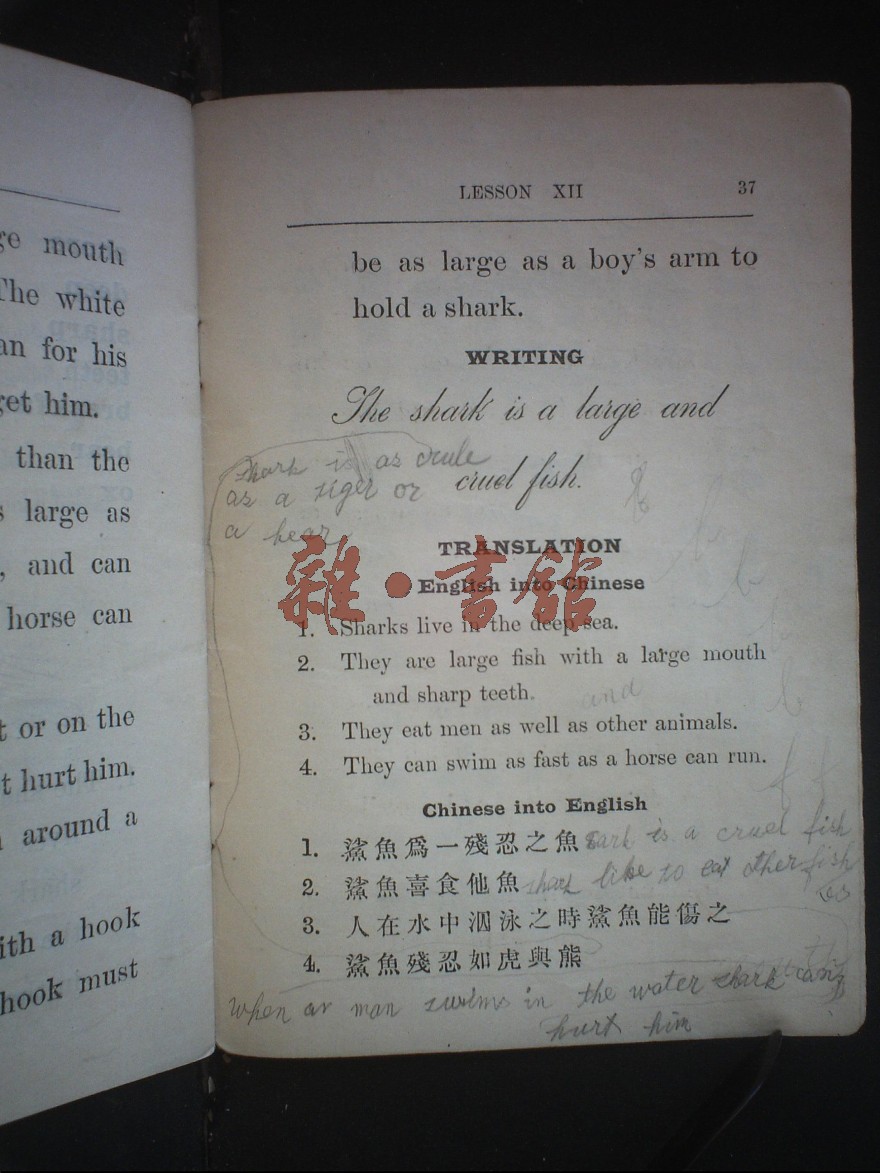 ge mouth
The white
an for his
get him.
than the
s large as
, and can
horse can
t or on the
t hurt him.
around a
ith a hook
hook must
LESSON XII 37
be as large as a boy's arm to
hold a shark.
WRITING
The shark is a large and
cruel fish.
shark is as crule
as a tiger or
a bear
TRANSLATION
English into Chinese
雜·書館
1. Sharks live in the deep sea.
2. They are large fish with a large mouth
and sharp teeth.
and
3. They eat men as well as other animals.
4. They can swim as fast as a horse can run.
Chinese into English
1. 鯊魚爲一殘忍之魚 sark is a cruel fish
2. 鯊魚喜食他魚 shark like to eat other fish
es
3. 人在水中泅泳之時鯊魚能傷之
4. 鯊魚殘忍如虎與熊
When a man swims in the water shark can
hurt him